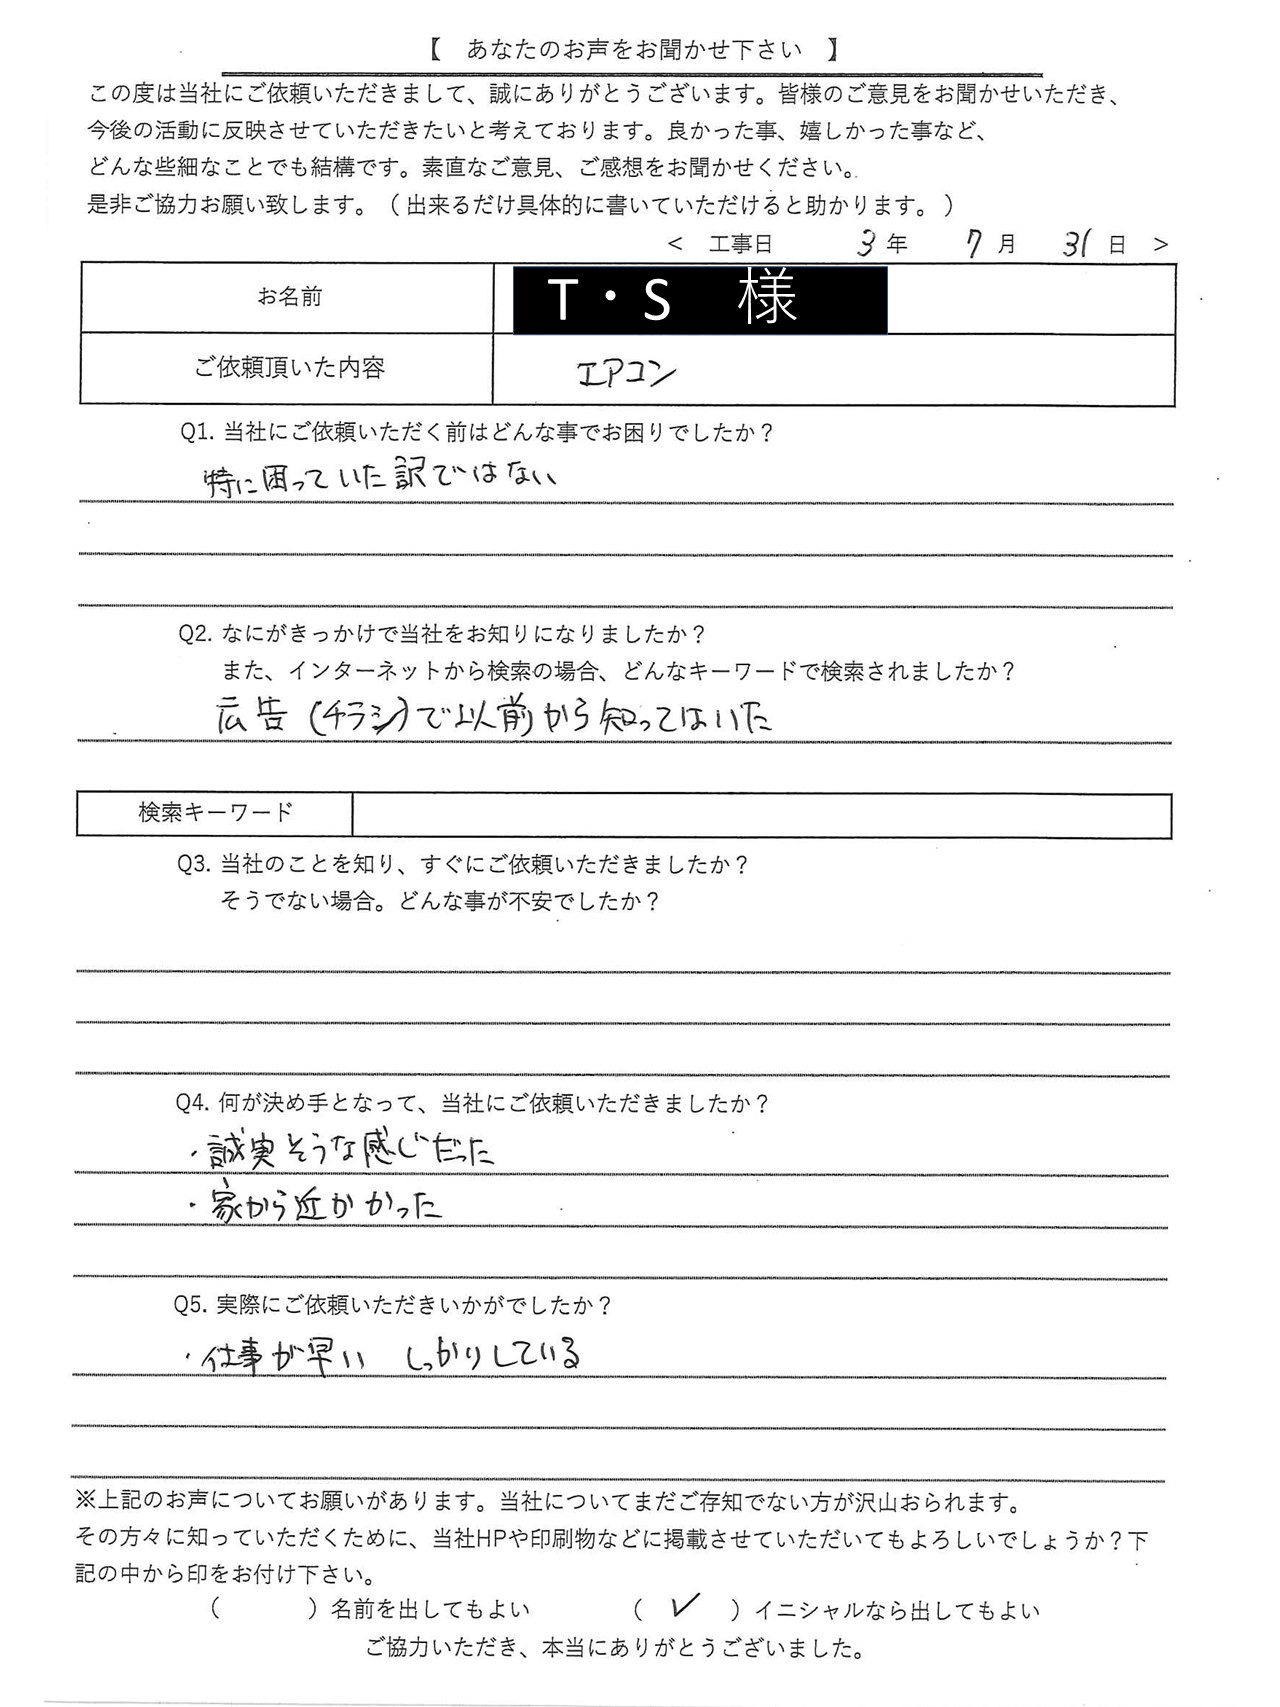 【　あなたのお声をお聞かせ下さい　】
この度は当社にご依頼いただきまして、誠にありがとうございます。皆様のご意見をお聞かせいただき、
今後の活動に反映させていただきたいと考えております。良かった事、嬉しかった事など、
どんな些細なことでも結構です。素直なご意見、ご感想をお聞かせください。
是非ご協力お願い致します。（出来るだけ具体的に書いていただけると助かります。）
＜　工事日　3年　7月　31日　＞
お名前　T・S　様
ご依頼頂いた内容　エアコン
Q1. 当社にご依頼いただく前はどんな事でお困りでしたか？
特に困っていた訳ではない
Q2. なにがきっかけで当社をお知りになりましたか？
また、インターネットから検索の場合、どんなキーワードで検索されましたか？
広告（チラシ）で以前から知ってはいた
検索キーワード
Q3. 当社のことを知り、すぐにご依頼いただきましたか？
そうでない場合。どんな事が不安でしたか？
Q4. 何が決め手となって、当社にご依頼いただきましたか？
・誠実そうな感じだった
・家から近かかった
Q5. 実際にご依頼いただきいかがでしたか？
・仕事が早い　しっかりしている
※上記のお声についてお願いがあります。当社についてまだご存知でない方が沢山おられます。
その方々に知っていただくために、当社HPや印刷物などに掲載させていただいてもよろしいでしょうか？下
記の中から印をお付け下さい。
（　　　）名前を出してもよい　　（　✓　）イニシャルなら出してもよい
ご協力いただき、本当にありがとうございました。